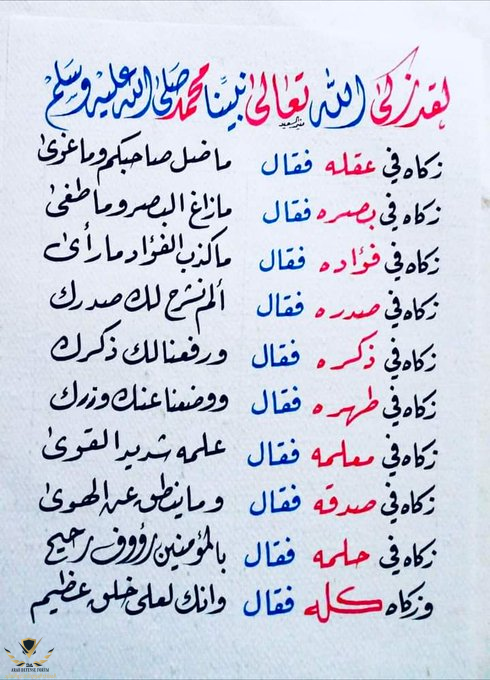 لقد زكى الله تعالى نبينا محمد صلى الله عليه وسلم
زكاه في عقله فقال ما ضل صاحبكم وما غوى
زكاه في بصره فقال ما زاغ البصر وما طغى
زكاه في فؤاده فقال ما كذب الفؤاد ما رأى
زكاه في صدره فقال ألم نشرح لك صدرك
زكاه في ذكره فقال ورفعنا لك ذكرك
زكاه في طهره فقال ووضعنا عنك وزرك
زكاه في معلمه فقال علمه شديد القوى
زكاه في صدقه فقال وما ينطق عن الهوى
زكاه في حلمه فقال بالمؤمنين رؤوف رحيم
وزكاه كله فقال وانك لعلى خلق عظيم
ARAB DEFENSE FORUM